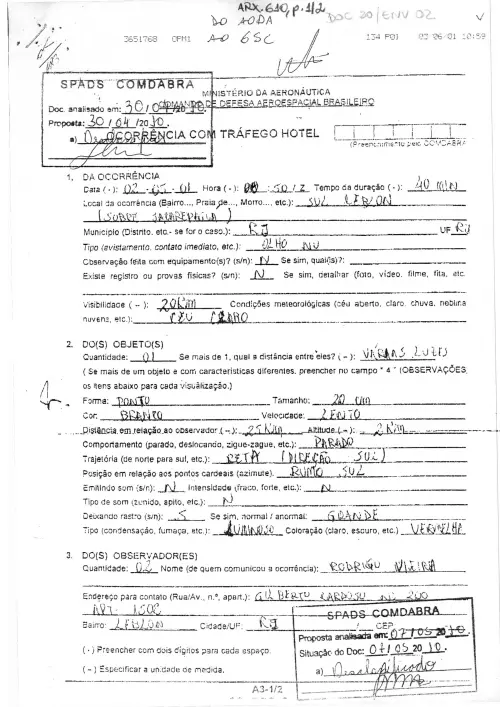 ARX. 610, p. 1/2
DO AODA
AO GSC
DOC 20/ENV 02
3651768 OPM1
134 P01 02-06-01 10:59
SPADS COMDABRA
Doc. analisado em: 30/04/2010.
Proposta: 30/04/2010.
a)
MINISTÉRIO DA AERONÁUTICA
COMANDO DE DEFESA AEROESPACIAL BRASILEIRO
OCORRÊNCIA COM TRÁFEGO HOTEL
(Preenchimento pelo COMDABRA
1. DA OCORRÊNCIA
Data (·): 02-05-01 Hora (·): Tempo da duração (·): 40 MIN
Local da ocorrência (Bairro..., Praia de..., Morro..., etc.): SUL LEBLON
(SOBRE JACAREPAGUA)
Município (Distrito, etc.- se for o caso.): RJ UF RJ
Tipo (avistamento, contato imediato, etc.): OLHO NU
Observação feita com equipamento(s)? (s/n): N Se sim, qual(is)?:
Existe registro ou provas físicas? (s/n): N Se sim, detalhar (foto, vídeo, filme, fita, etc.
Visibilidade (~): 20 KM Condições meteorológicas (céu aberto, claro, chuva, neblina
nuvens, etc.): CEU CLARO
2. DO(S) OBJETO(S)
Quantidade: 01 Se mais de 1, qual a distância entre eles? (~): VARIAS LUZES
( Se mais de um objeto e com características diferentes, preencher no campo " 4 " (OBSERVAÇÕES
os itens abaixo para cada visualização.)
Forma: PONTO Tamanho: 20 cm
Cor: BRANCO Velocidade: LENTO
Distância em relação ao observador (~): 25 KM Altitude (~): 2 KM
Comportamento (parado, deslocando, zigue-zague, etc.): PARADO
Trajetória (de norte para sul, etc.): RETA (DIREÇÃO SUL)
Posição em relação aos pontos cardeais (azimute). RUMO SUL
Emitindo som (s/n): N Intensidade (fraco, forte, etc.): N
Tipo de som (zunido, apito, etc.): N
Deixando rastro (s/n): S Se sim, normal / anormal: GRANDE
Tipo (condensação, fumaça, etc.): LUMINOSO Coloração (claro, escuro, etc.) VERMELHA
3. DO(S) OBSERVADOR(ES)
Quantidade: 02 Nome (de quem comunicou a ocorrência): RODRIGO VIEIRA
Endereço para contato (Rua/Av., n.º, apart.): GILBERTO CARDOSO Nº 200
APT.
Bairro: LEBLON Cidade/UF: RJ CEP
(·) Preencher com dois dígitos para cada espaço.
(~) Especificar a unidade de medida.
SPADS COMDABRA
Proposta analisada em: 07/05/2010.
Situação do Doc: 07/05/2010.
a) Desclassificado
A3-1/2